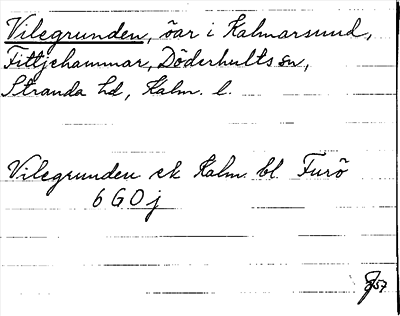 Vilegrunden, öar i Kalmarsund,
Fittjehammar, Döderhults sn,
Stranda hd, Kalm. l.
Vilegrunden ek Kalm. bl. Furö
6 G 0 j
57